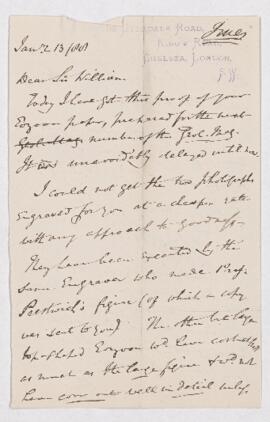 Jones
Road,
King's Road,
Chelsea, London,
S.W.
Jany 13
Dear Sir William,
Today I have got this proof of your
Eozoon paper, prepared for the next
number of the Geol. Mag.
It was unavoidably delayed until now.
I could not get the two photographs
engraved for you at a cheaper rate
with any approach to goodness.
They have been executed by the
same Engraver who made Prof.
Prestwich's figure (of which a copy
was sent to you). The other large
top-shaped Eozoon wd have cost
as much as the large figure & wd not
have come out well in detail unless